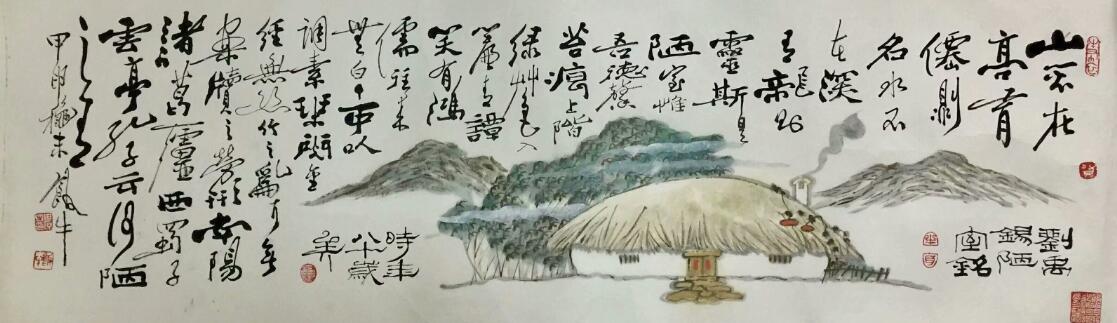 山不在
高有
僊則
名水不
在深
有龍則
靈斯是
陋室惟
吾德馨
苔痕上階
緑艸色入
簾青譚
笑有鴻
儒往来
無白丁可以
調素琴閱金
經無絲竹之亂耳無
案牘之勞形南陽
諸葛廬西蜀子
雲亭孔子云何陋
之有
甲申穐末飯牛
時年
八十歲
矣
劉禹
錫陋
室銘